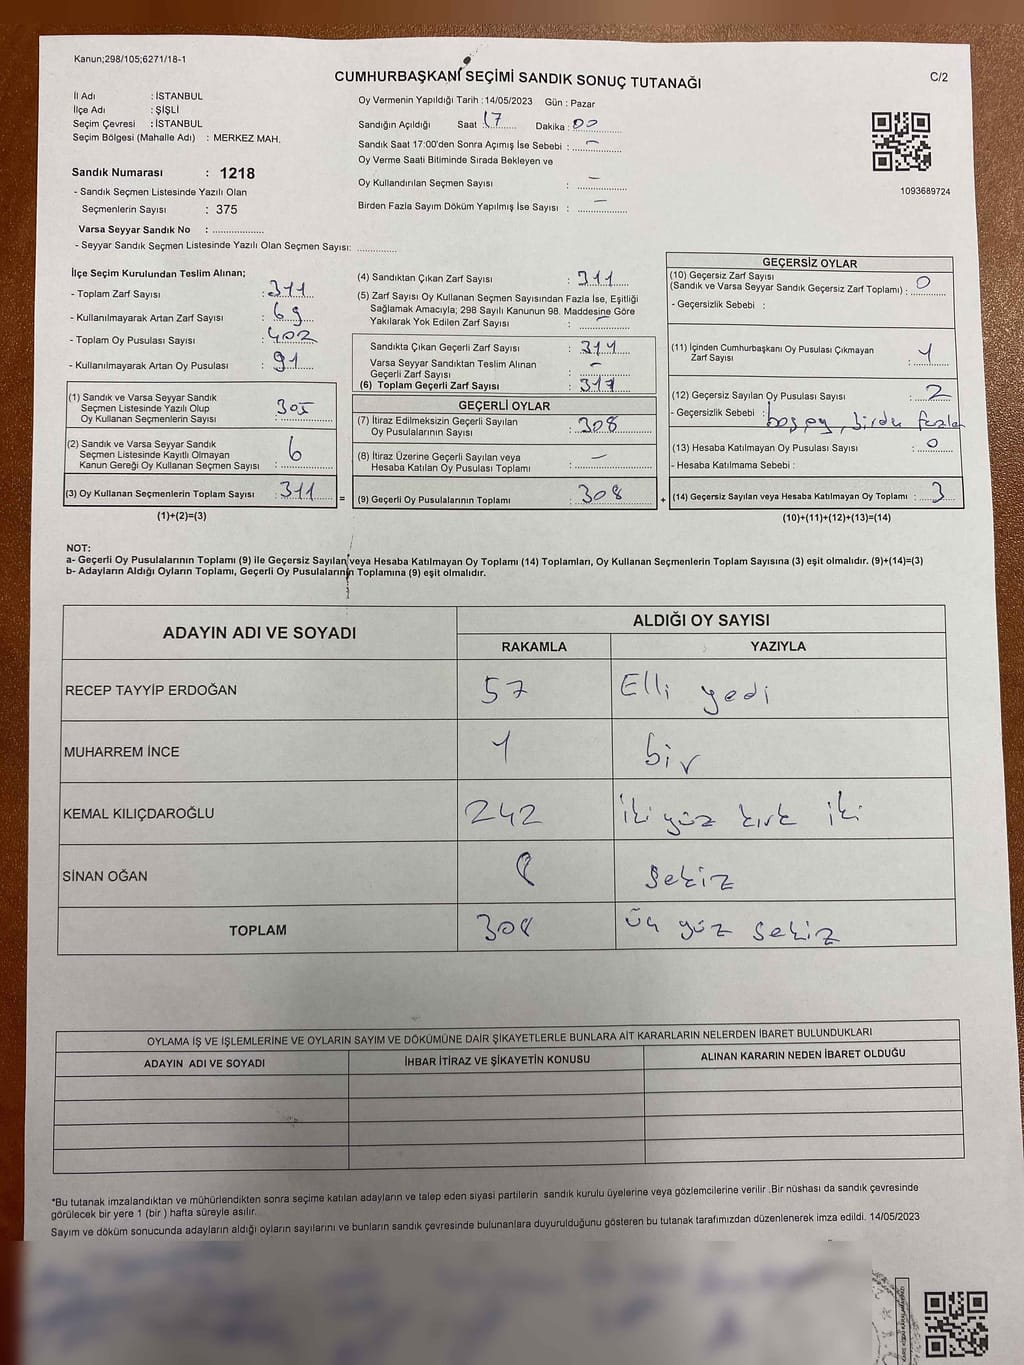 Kanun;298/105;6271/18-1
CUMHURBAŞKANI SEÇİMİ SANDIK SONUÇ TUTANAĞI
C/2
İl Adı : İSTANBUL
İlçe Adı : ŞİŞLİ
Seçim Çevresi : İSTANBUL
Seçim Bölgesi (Mahalle Adı) : MERKEZ MAH.
Sandık Numarası : 1218
- Sandık Seçmen Listesinde Yazılı Olan
Seçmenlerin Sayısı : 375
Varsa Seyyar Sandık No : ..................
- Seyyar Sandık Seçmen Listesinde Yazılı Olan Seçmen Sayısı: ..............
Oy Vermenin Yapıldığı Tarih : 14/05/2023 Gün : Pazar
Sandığın Açıldığı Saat : 17 Dakika : 00
Sandık Saat 17:00'den Sonra Açımış İse Sebebi : –
Oy Verme Saati Bitiminde Sırada Bekleyen ve
Oy Kullandırılan Seçmen Sayısı : –
Birden Fazla Sayım Döküm Yapılmış İse Sayısı : –
1093689724
İlçe Seçim Kurulundan Teslim Alınan;
- Toplam Zarf Sayısı : 311
- Kullanılmayarak Artan Zarf Sayısı : 69
- Toplam Oy Pusulası Sayısı : 402
- Kullanılmayarak Artan Oy Pusulası : 91
(1) Sandık ve Varsa Seyyar Sandık
Seçmen Listesinde Yazılı Olup
Oy Kullanan Seçmenlerin Sayısı : 305
(2) Sandık ve Varsa Seyyar Sandık
Seçmen Listesinde Kayıtlı Olmayan
Kanun Gereği Oy Kullanan Seçmen Sayısı : 6
(3) Oy Kullanan Seçmenlerin Toplam Sayısı : 311 =
(1)+(2)=(3)
(4) Sandıktan Çıkan Zarf Sayısı : 311
(5) Zarf Sayısı Oy Kullanan Seçmen Sayısından Fazla İse, Eşitliği
Sağlamak Amacıyla; 298 Sayılı Kanunun 98. Maddesine Göre
Yakılarak Yok Edilen Zarf Sayısı : –
Sandıkta Çıkan Geçerli Zarf Sayısı : 311
Varsa Seyyar Sandıktan Teslim Alınan
Geçerli Zarf Sayısı : –
(6) Toplam Geçerli Zarf Sayısı : 311
GEÇERLİ OYLAR
(7) İtiraz Edilmeksizin Geçerli Sayılan
Oy Pusulalarının Sayısı : 308
(8) İtiraz Üzerine Geçerli Sayılan veya
Hesaba Katılan Oy Pusulası Toplamı : –
(9) Geçerli Oy Pusulalarının Toplamı : 308 +
GEÇERSİZ OYLAR
(10) Geçersiz Zarf Sayısı
(Sandık ve Varsa Seyyar Sandık Geçersiz Zarf Toplamı) : 0
- Geçersizlik Sebebi :
(11) İçinden Cumhurbaşkanı Oy Pusulası Çıkmayan
Zarf Sayısı : 1
(12) Geçersiz Sayılan Oy Pusulası Sayısı : 2
- Geçersizlik Sebebi : boş oy, birden fazla
(13) Hesaba Katılmayan Oy Pusulası Sayısı : 0
- Hesaba Katılmama Sebebi :
(14) Geçersiz Sayılan veya Hesaba Katılmayan Oy Toplamı : 3
(10)+(11)+(12)+(13)=(14)
NOT:
a- Geçerli Oy Pusulalarının Toplamı (9) ile Geçersiz Sayılan veya Hesaba Katılmayan Oy Toplamı (14) Toplamları, Oy Kullanan Seçmenlerin Toplam Sayısına (3) eşit olmalıdır. (9)+(14)=(3)
b- Adayların Aldığı Oyların Toplamı, Geçerli Oy Pusulalarının Toplamına (9) eşit olmalıdır.
ADAYIN ADI VE SOYADI
ALDIĞI OY SAYISI
RAKAMLA YAZIYLA
RECEP TAYYİP ERDOĞAN 57 Elli yedi
MUHARREM İNCE 1 bir
KEMAL KILIÇDAROĞLU 242 iki yüz kırk iki
SİNAN OĞAN 8 Sekiz
TOPLAM 308 üç yüz sekiz
OYLAMA İŞ VE İŞLEMLERİNE VE OYLARIN SAYIM VE DÖKÜMÜNE DAİR ŞİKAYETLERLE BUNLARA AİT KARARLARIN NELERDEN İBARET BULUNDUKLARI
ADAYIN ADI VE SOYADI İHBAR İTİRAZ VE ŞİKAYETİN KONUSU ALINAN KARARIN NEDEN İBARET OLDUĞU
*Bu tutanak imzalandıktan ve mühürlendikten sonra seçime katılan adayların ve talep eden siyasi partilerin sandık kurulu üyelerine veya gözlemcilerine verilir .Bir nüshası da sandık çevresinde
görülecek bir yere 1 (bir ) hafta süreyle asılır.
Sayım ve döküm sonucunda adayların aldığı oyların sayılarını ve bunların sandık çevresinde bulunanlara duyurulduğunu gösteren bu tutanak tarafımızdan düzenlenerek imza edildi. 14/05/2023